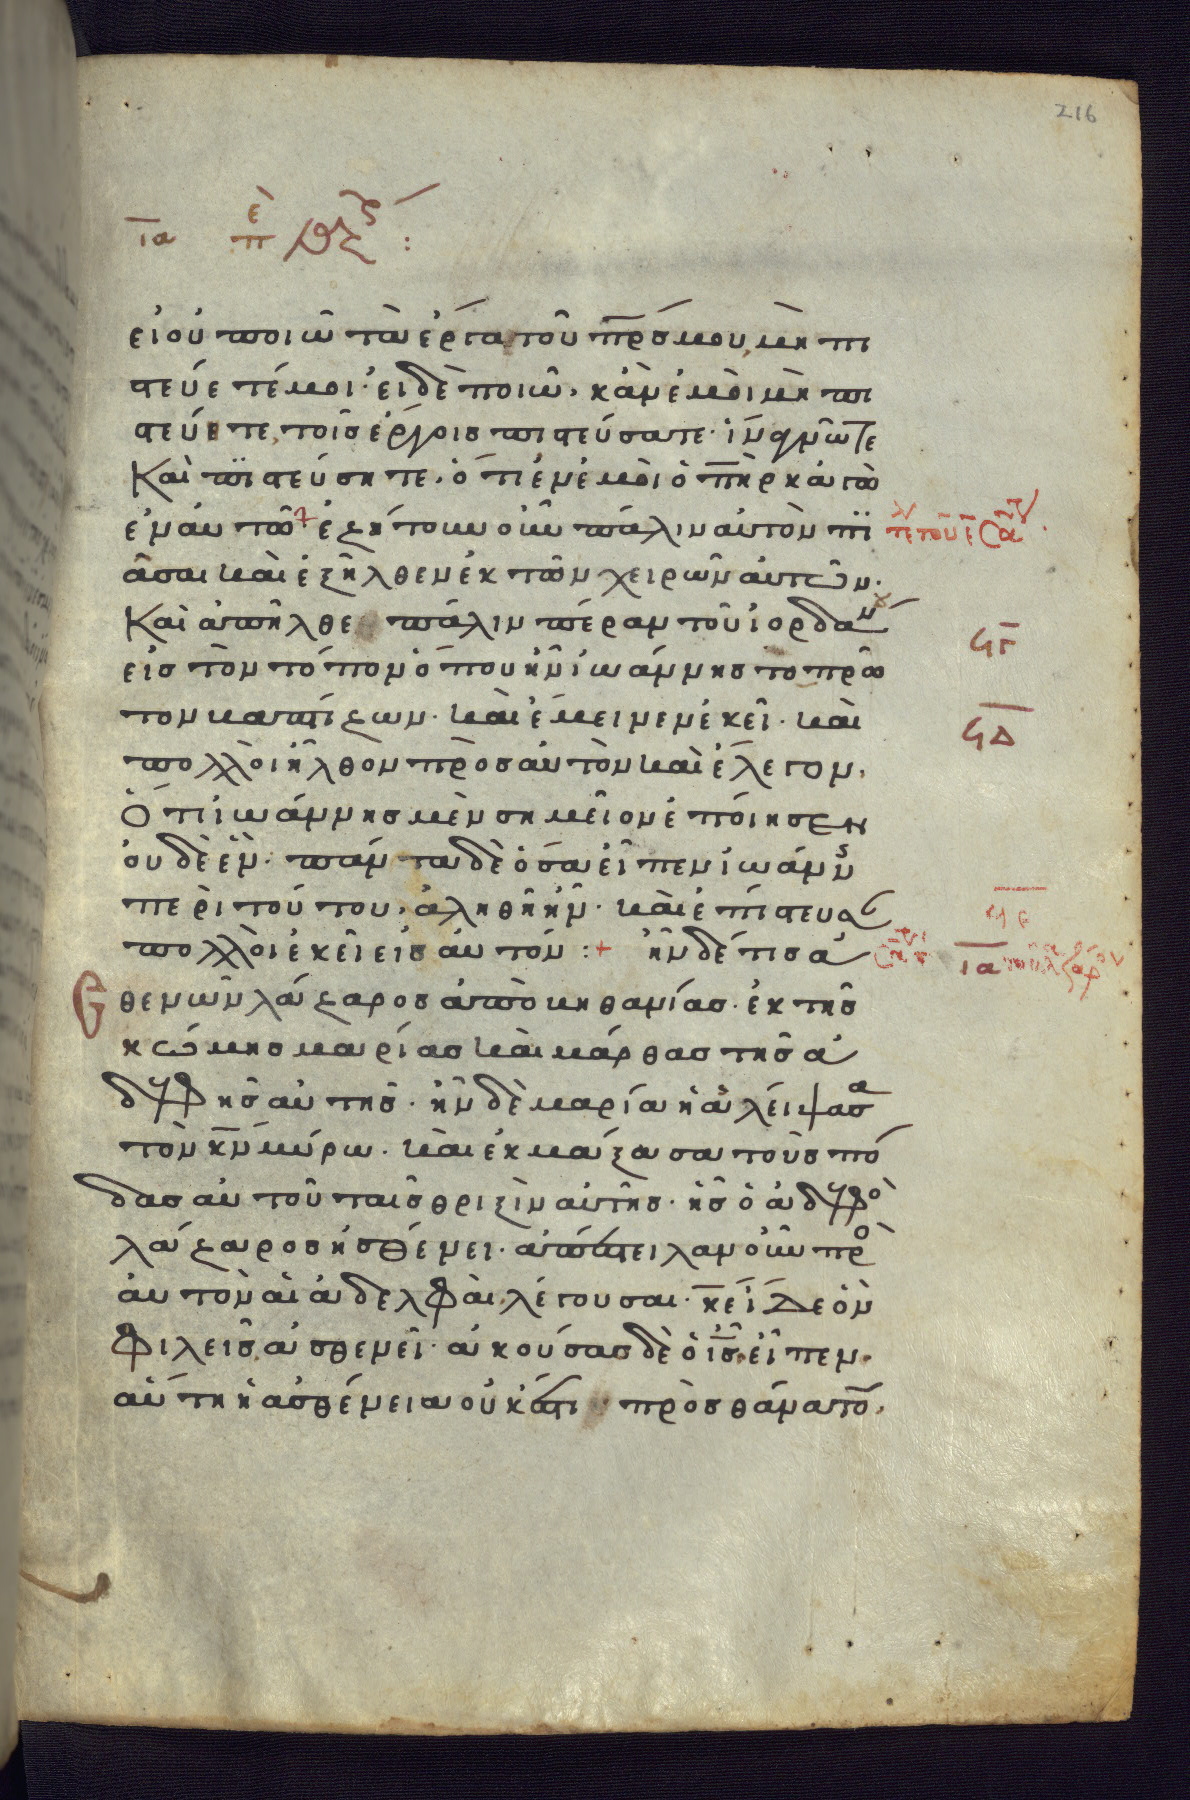 216
ια
εἰ οὐ ποιῶ τὰ ἔργα τοῦ π̅ρ̅ς μου, μὴ πι
στεύετέ μοι· εἰ δὲ ποιῶ, κἂν ἐμοὶ μὴ πι
στεύετε, τοῖς ἔργοις πιστεύσατε· ἵνα γνῶτε
Καὶ πιστεύσητε, ὅτι ἐν ἐμοὶ ὁ π̅η̅ρ κἀγὼ
ἐν αὐτῶ ἐζήτουν οὖν πάλιν αὐτὸν πι
ἆσαι καὶ ἐξῆλθεν ἐκ τῶν χειρῶν αὐτῶν.
Καὶ ἀπῆλθε πάλιν πέραν τοῦ ἰορδάν
ϟγ
εἰς τὸν τόπον ὅπου ἦν ἰωάννης το πρῶ
τον βαπτίζων· καὶ ἔμεινεν ἐκεῖ· καὶ
ϟδ
πολλοὶ ἦλθον πρὸς αὐτὸν καὶ ἔλεγον,
Ὅτι ἰωάννης μὲν σημεῖον ἐποίησεν
οὐδὲ ἕν· πάντα δὲ ὅσα εἶπεν ἰωάνν
περὶ τούτου, ἀληθῆ ἦν· καὶ ἐπίστευσ
πολλοὶ ἐκεῖ εἰς αὐτόν :+ ἦν δέ τις ἀ
ια
σθενῶν λάζαρος ἀπὸ βηθανίας· ἐκ τῆς
κώμης μαρίας καὶ μάρθας τῆς ἀ
δελφῆς αὐτῆς· ἦν δὲ μαρία ἡ ἀλείψασα
τὸν κ̅ν̅ μύρω· καὶ ἐκμάξασα τοὺς πό
δας αὐτοῦ ταῖς θριξὶν αὐτῆς· ἧς ὁ ἀδελφὸ
λάζαρος ἠσθένει· ἀπέστειλαν οὖν πρὸ
αὐτὸν αἱ ἀδελφαὶ, λέγουσαι· κ̅ε̅ ἴδε ὃν
φιλεῖς, ἀσθενεῖ· ἀκούσας δὲ ὁ ι̅ς̅ εἶπεν.
αὕτη ἡ ἀσθένεια οὐκ ἔστι πρὸς θάνατο,